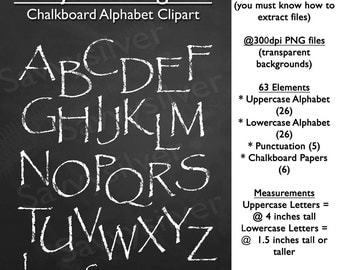 Chalkboard Alphabet Clipart
ABCDEF
GHIJKLM
NOPQRS
TUVWXYZ
(you must know how to
extract files)
@300dpi PNG files
(transparent
backgrounds)
63 Elements
* Uppercase Alphabet
(26)
* Lowercase Alphabet
(26)
* Punctuation (5)
* Chalkboard Papers
(6)
Measurements
Uppercase Letters =
@ 4 inches tall
Lowercase Letters =
@ 1.5 inches tall or
taller